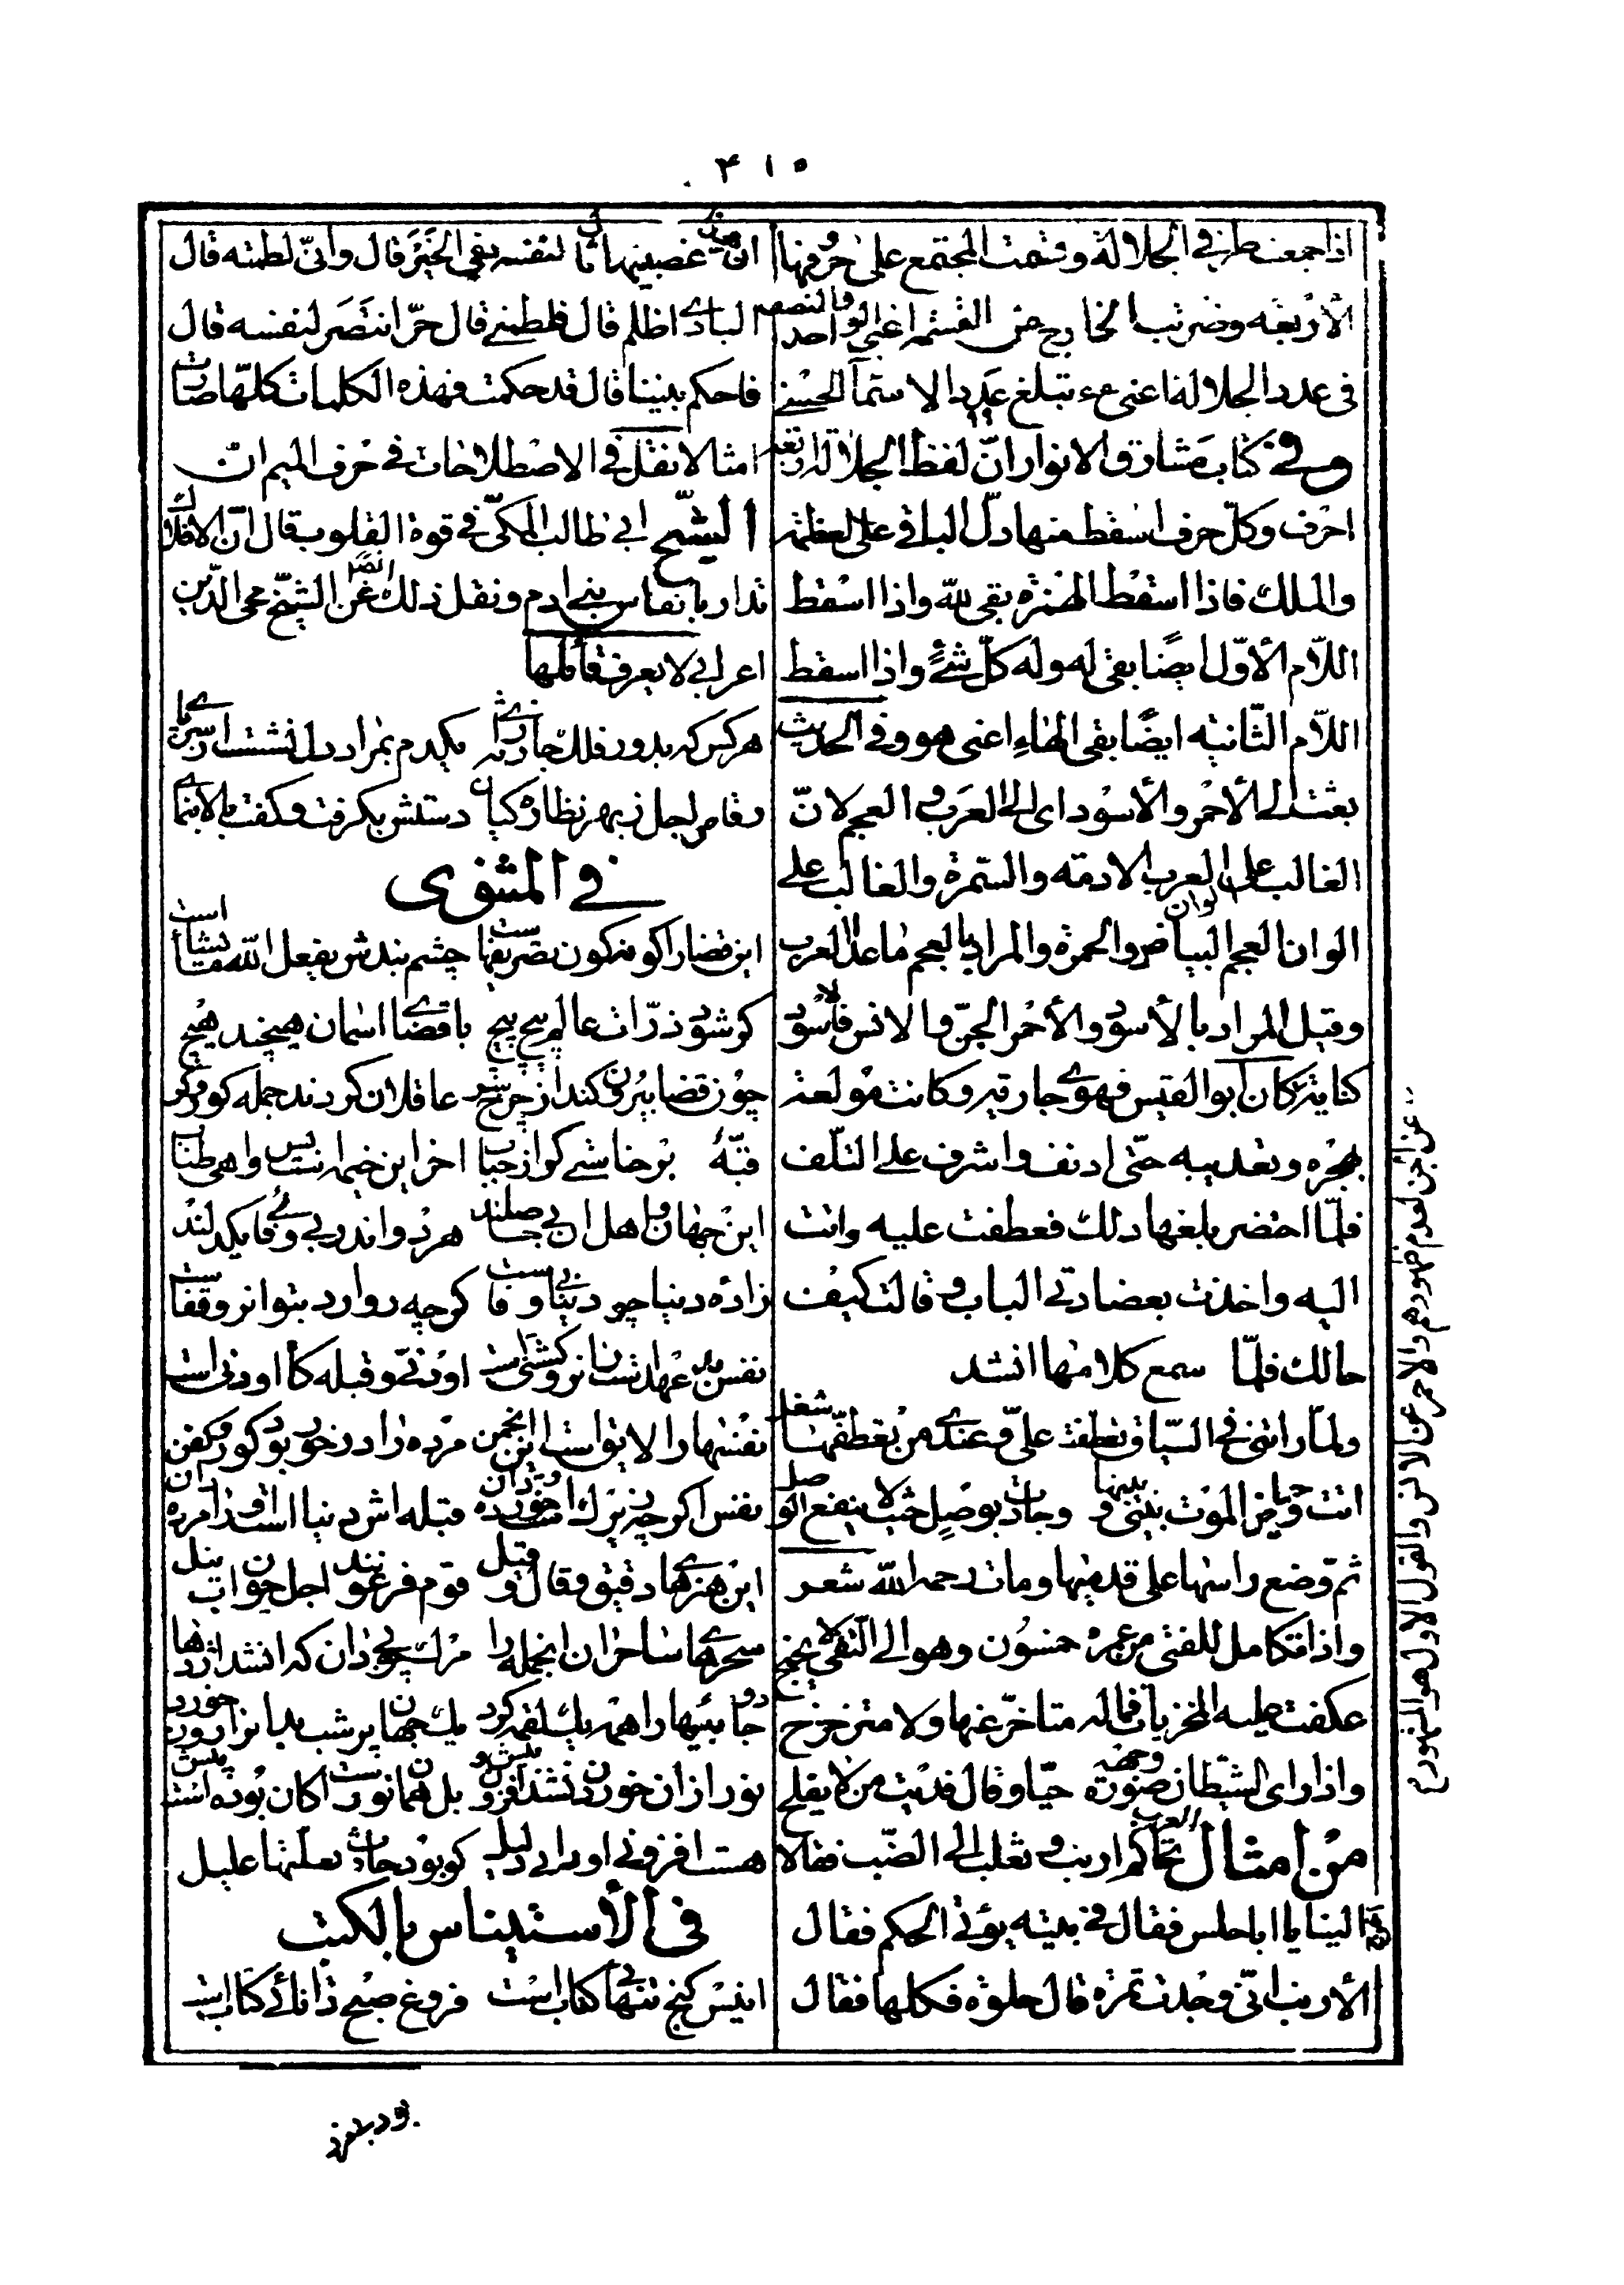 ٣١٥
اذا جمعت طرفى الجلالة وقسمت المجتمع على حروفها
الأربعة وضربت الخارج من القسمة اعنى الواحد والنصف
فى عدد الجلالة اعنى ٦٦ تبلغ عدد الاسمآ الحسنى ٩٩
وفى كتاب مشارق الانوار انّ لفظ الجلالة اربعة
احرف وكلّ حرف اسقط منها دلّ الباقى على العظمة
والملك فاذا اسقط الهمزة بقى لله واذا اسقط
اللّام الأوّل ايضًا بقى له وله كلّ شئ واذا اسقط
اللّام الثّانية ايضًا بقى الهاء اعنى هو وفى الحديث
بعثت الى الأحمر والأسود اى الى العرب و العجم لانّ
الغالب على الوان العرب الادمة والسّمرة والغالب على
الوان العجم البياض والحمرة والمراد بالعجم ما عدا العرب
وقيل المراد بالأسود والأحمر الجنّ والانس فالاسود
كناية كان ابو القيس فهوى جارية وكانت مولعة
بهجره وتعذيبه حتّى ادنف واشرف على التلف
فلمّا احتضر بلغها ذلك فعطفت عليه واتت
اليه واخذت بعضادتى الباب و قالت كيف
حالك فلمّا سمع كلامها انشد
ولمّا راتنى فى السّياق تعطّفت علىّ وعندى من تعطّفها شغل
اتت وحياض الموت بينى و بينها وجادت بوصل حيث لا ينفع الوصل
ثمّ وضع راسها على قدميها ومات رحمه الله شعر
واذا تكامل للفتى من عمره خمسون وهو الى التقى لا يجنح
عكفت عليه المخزيات فما له متاخّر عنها ولا متزحزح
واذا راى الشيطان صورة وجهه حيّا وقال فديت من لا يفلح
من امثال العرب تحاكم ارنب و ثعلب الى الضّب فقالا
الينا يا ابا حسل فقال فى بيته يؤتى الحكم فقال
الأرنب انّى وجدت تمرة قال حلوة فكلها فقال
ان الثعلب غصبنيها قال لنفسه بغى الخير قال وانّى لطمته قال
البادى اظلم قال فلطمنى قال حرّ انتصر لنفسه قال
فاحكم بيننا قال قد حكمت فهذه الكلمات كلّها صارت
امثالا نقل فى الاصطلاحات فى حرف الميم انّ
الشيخ ابى طالب المكّى فى قوة القلوب قال انّ الافلاك
تدار بانفاس بنى ادم ونقل ذلك ايضا عن الشيخ محى الدّين
اعرابى لا يعرف قائلها
هر كس كه بدور فلك جا دارد يكدم بمراد دل نشست از سر پاى
رقاص اجل ز بهر نظارگيان دستش بگرفت و گفت بالا بنماى
فى المثنوى
اين قضا را گونه گون تصريفهاست چشم بندش يفعل الله ما يشاست
گر شود ذرّات عالم پيچ پيچ با قضاى اسمان هيچند هيچ
چون قضا بيرون كند از چرخ سر عاقلان گردند جمله كور و كر
قبّهٔ بر خاستى گر از حباب اخر اين خيمه نيست بس واهى طناب
اين جهان و اهل ان بى حاصلند هر دو اندر بى وفائى يكدلند
زادهٔ دنيا چو دنيا بى وفاست گر چه رو ارد بتو ان رو قفاست
نفس بد عهدست زان رو كشتنى است او دنى و قبله گاه او دنى است
نفسها را لايق است اين انجمن مرده را در خور بود گور و كفن
نفس اگر چه زيرك است و خورده دان قبله اش دنيا است او را مرده دان
اين هنرهاى دقيق و قال و قيل قوم فرعونند اجل چون اب نيل
سحرهاى ساحران انجمله را مرگ چوبى دان كه ان شد اژدها
جادوئيها را همه يك لقمه كرد يك جهان پر شب بد ان را روز خورد
نور از ان خوردن نشد افزون و بيش بل همانورست كان بوده است پيش
هست افزونى او را بى دليل كو بود حادث بعلّتها عليل
فى الأستيناس بالكتب
انيس كنج تنهائى كتاب است فروغ صبح دانائى كتاب است
عن الجن لعدم ظهورهم والاحمر عن الانس والقول الاول هو المشهور
بود بى مزد